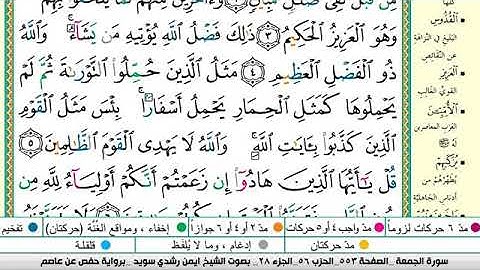 وَهُوَ ٱلْعَزِيزُ ٱلْحَكِيمُ ٣ ذَٰلِكَ فَضْلُ ٱللَّهِ يُؤْتِيهِ مَن يَشَآءُ ۚ وَٱللَّهُ
ذُو ٱلْفَضْلِ ٱلْعَظِيمِ ٤ مَثَلُ ٱلَّذِينَ حُمِّلُوا۟ ٱلتَّوْرَىٰةَ ثُمَّ لَمْ
يَحْمِلُوهَا كَمَثَلِ ٱلْحِمَارِ يَحْمِلُ أَسْفَارًۢا ۚ بِئْسَ مَثَلُ ٱلْقَوْمِ
ٱلَّذِينَ كَذَّبُوا۟ بِـَٔايَٰتِ ٱللَّهِ ۚ وَٱللَّهُ لَا يَهْدِى ٱلْقَوْمَ ٱلظَّٰلِمِينَ ٥
قُلْ يَٰٓأَيُّهَا ٱلَّذِينَ هَادُوٓا۟ إِن زَعَمْتُمْ أَنَّكُمْ أَوْلِيَآءُ لِلَّهِ مِن
ٱلْقُدُّوسِ
البليغ في النزاهة
عن النقائص
ٱلْعَزِيزِ
القوي الغالب
ٱلْأُمِّيِّـۧنَ
العرب المعاصرين
له ﷺ
يُزَكِّيهِمْ
يطهرهم من
أدناس الجاهلية
مدّ ٦ حركات لزوماً مدّ واجب ٤ أو ٥ حركات مدّ ٢ أو ٤ أو ٦ جوازاً إخفاء، ومواقع الغُنَّة (حركتان) تفخيم
مدّ حركتان إدغام، وما لا يُلفَظ قلقلة
سورة الجمعة_ الصفحة ٥٥٣_ الحزب ٥٦_ الجزء ٢٨_ بصوت الشيخ ايمن رشدي سويد _برواية حفص عن عاصم